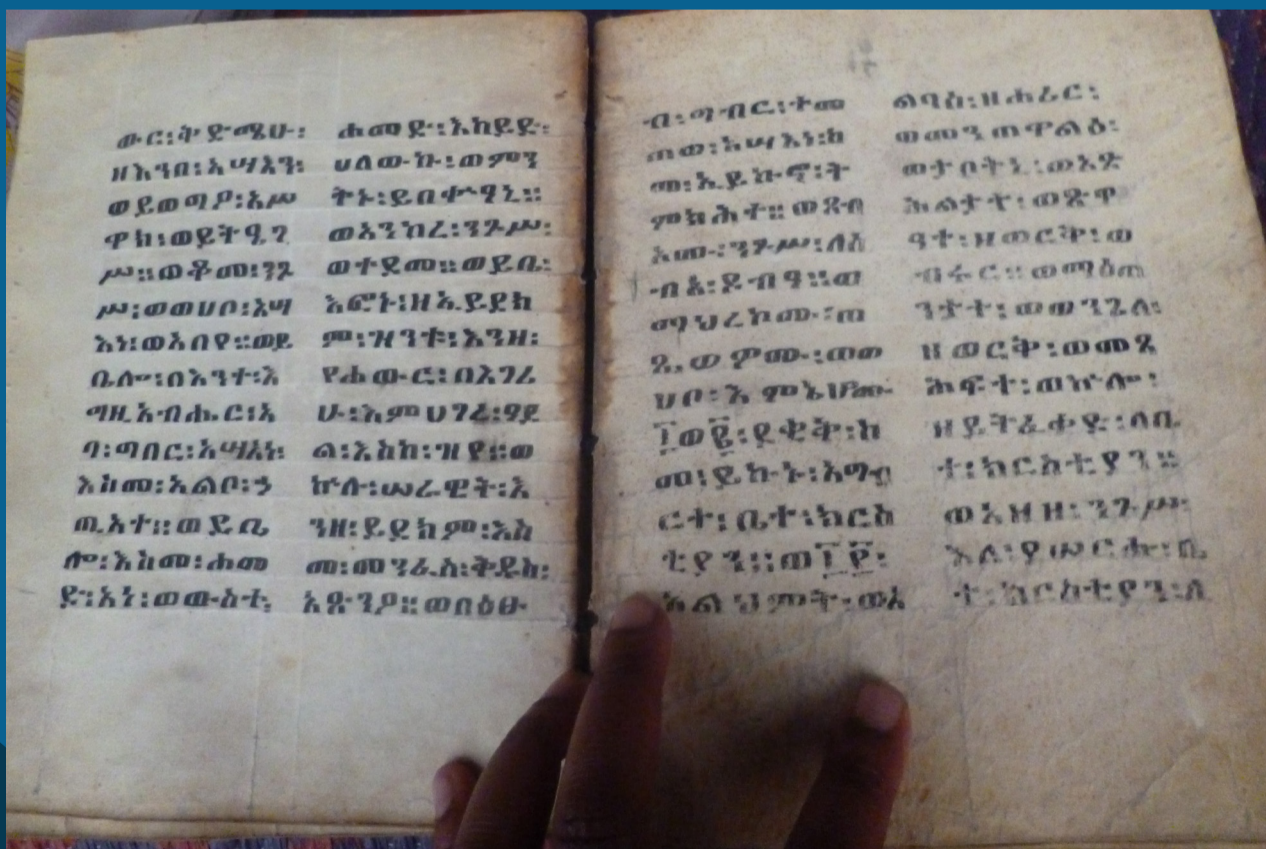 ውር፡ቅድሜሁ፡
ዘእንበ፡አሣእን፡
ወይወግዖ፡አሥ
ዋክ፡ወይትዔገ
ሥ።ወቆመ፡ንጉ
ሥ፡ወወሀቦ፡አሣ
እነ፡ወአበየ።ወይ
ቤሎ፡በእንተ፡እ
ግዚአብሔር፡አ
ባ፡ግበር፡አሣእነ፡
እስመ፡አልቦ፡ኃ
ጢአተ።ወይቤ
ሎ፡እስመ፡ሐመ
ድ፡አነ፡ወውስተ፡
ሐመድ፡እከይድ፡
ሀለውኩ፡ወምን
ትኑ፡ይበቍዓኒ።
ወአንከረ፡ንጉሥ፡
ወተደመ።ወይቤ፡
እፎኑ፡ዘኢይደክ
ም፡ዝንቱ፡እንዘ፡
የሐውር፡በእገሪ
ሁ፡እምሀገረ፡
ል፡እስከ፡ዝየ።ወ
ኵሉ፡ሠራዊት፡እ
ንዘ፡ይደክም፡እስ
መ፡መንፈስ፡ቅዱስ፡
አጽንዖ።ወበዕፁ
ብ፡ግብር፡ተመ
ጠወ፡አሣእነ፡ከ
መ፡ኢይኩኖ፡ት
ምክሕተ።ወጸብ
ኦሙ፡ንጉሥ፡ለሰ
ብአ፡ደብዓ።ወ
ማህረኮሙ፡ጠ
ወሀቦ፡እምኔሆሙ
፲ወ፪፡ደቂቅ፡ከ
መ፡ይኩኑ፡አግብ
ርተ፡ቤተ፡ክርስ
ቲያን።ወ፲፪፡
አልህምት፡ወአ
ልባሰ፡ዘሐሪር፡
ወመንጦዋልዕ፡
ወታቦትኒ፡ወአጽ
ሕልታተ፡ወጽዋ
ዓተ፡ዘወርቅ፡ወ
ብሩር።ወማዕጠ
ንታተ፡ወወንጌለ፡
ዘወርቅ፡ወመጸ
ሕፍተ፡ወኵሎ፡
ዘይትፈቀድ፡ለቤ
ተ፡ክርስቲያን።
ወአዘዘ፡ንጉሥ፡
እለ፡የሠርሑ፡ቤ
ተ፡ክርስቲያን፡ለ